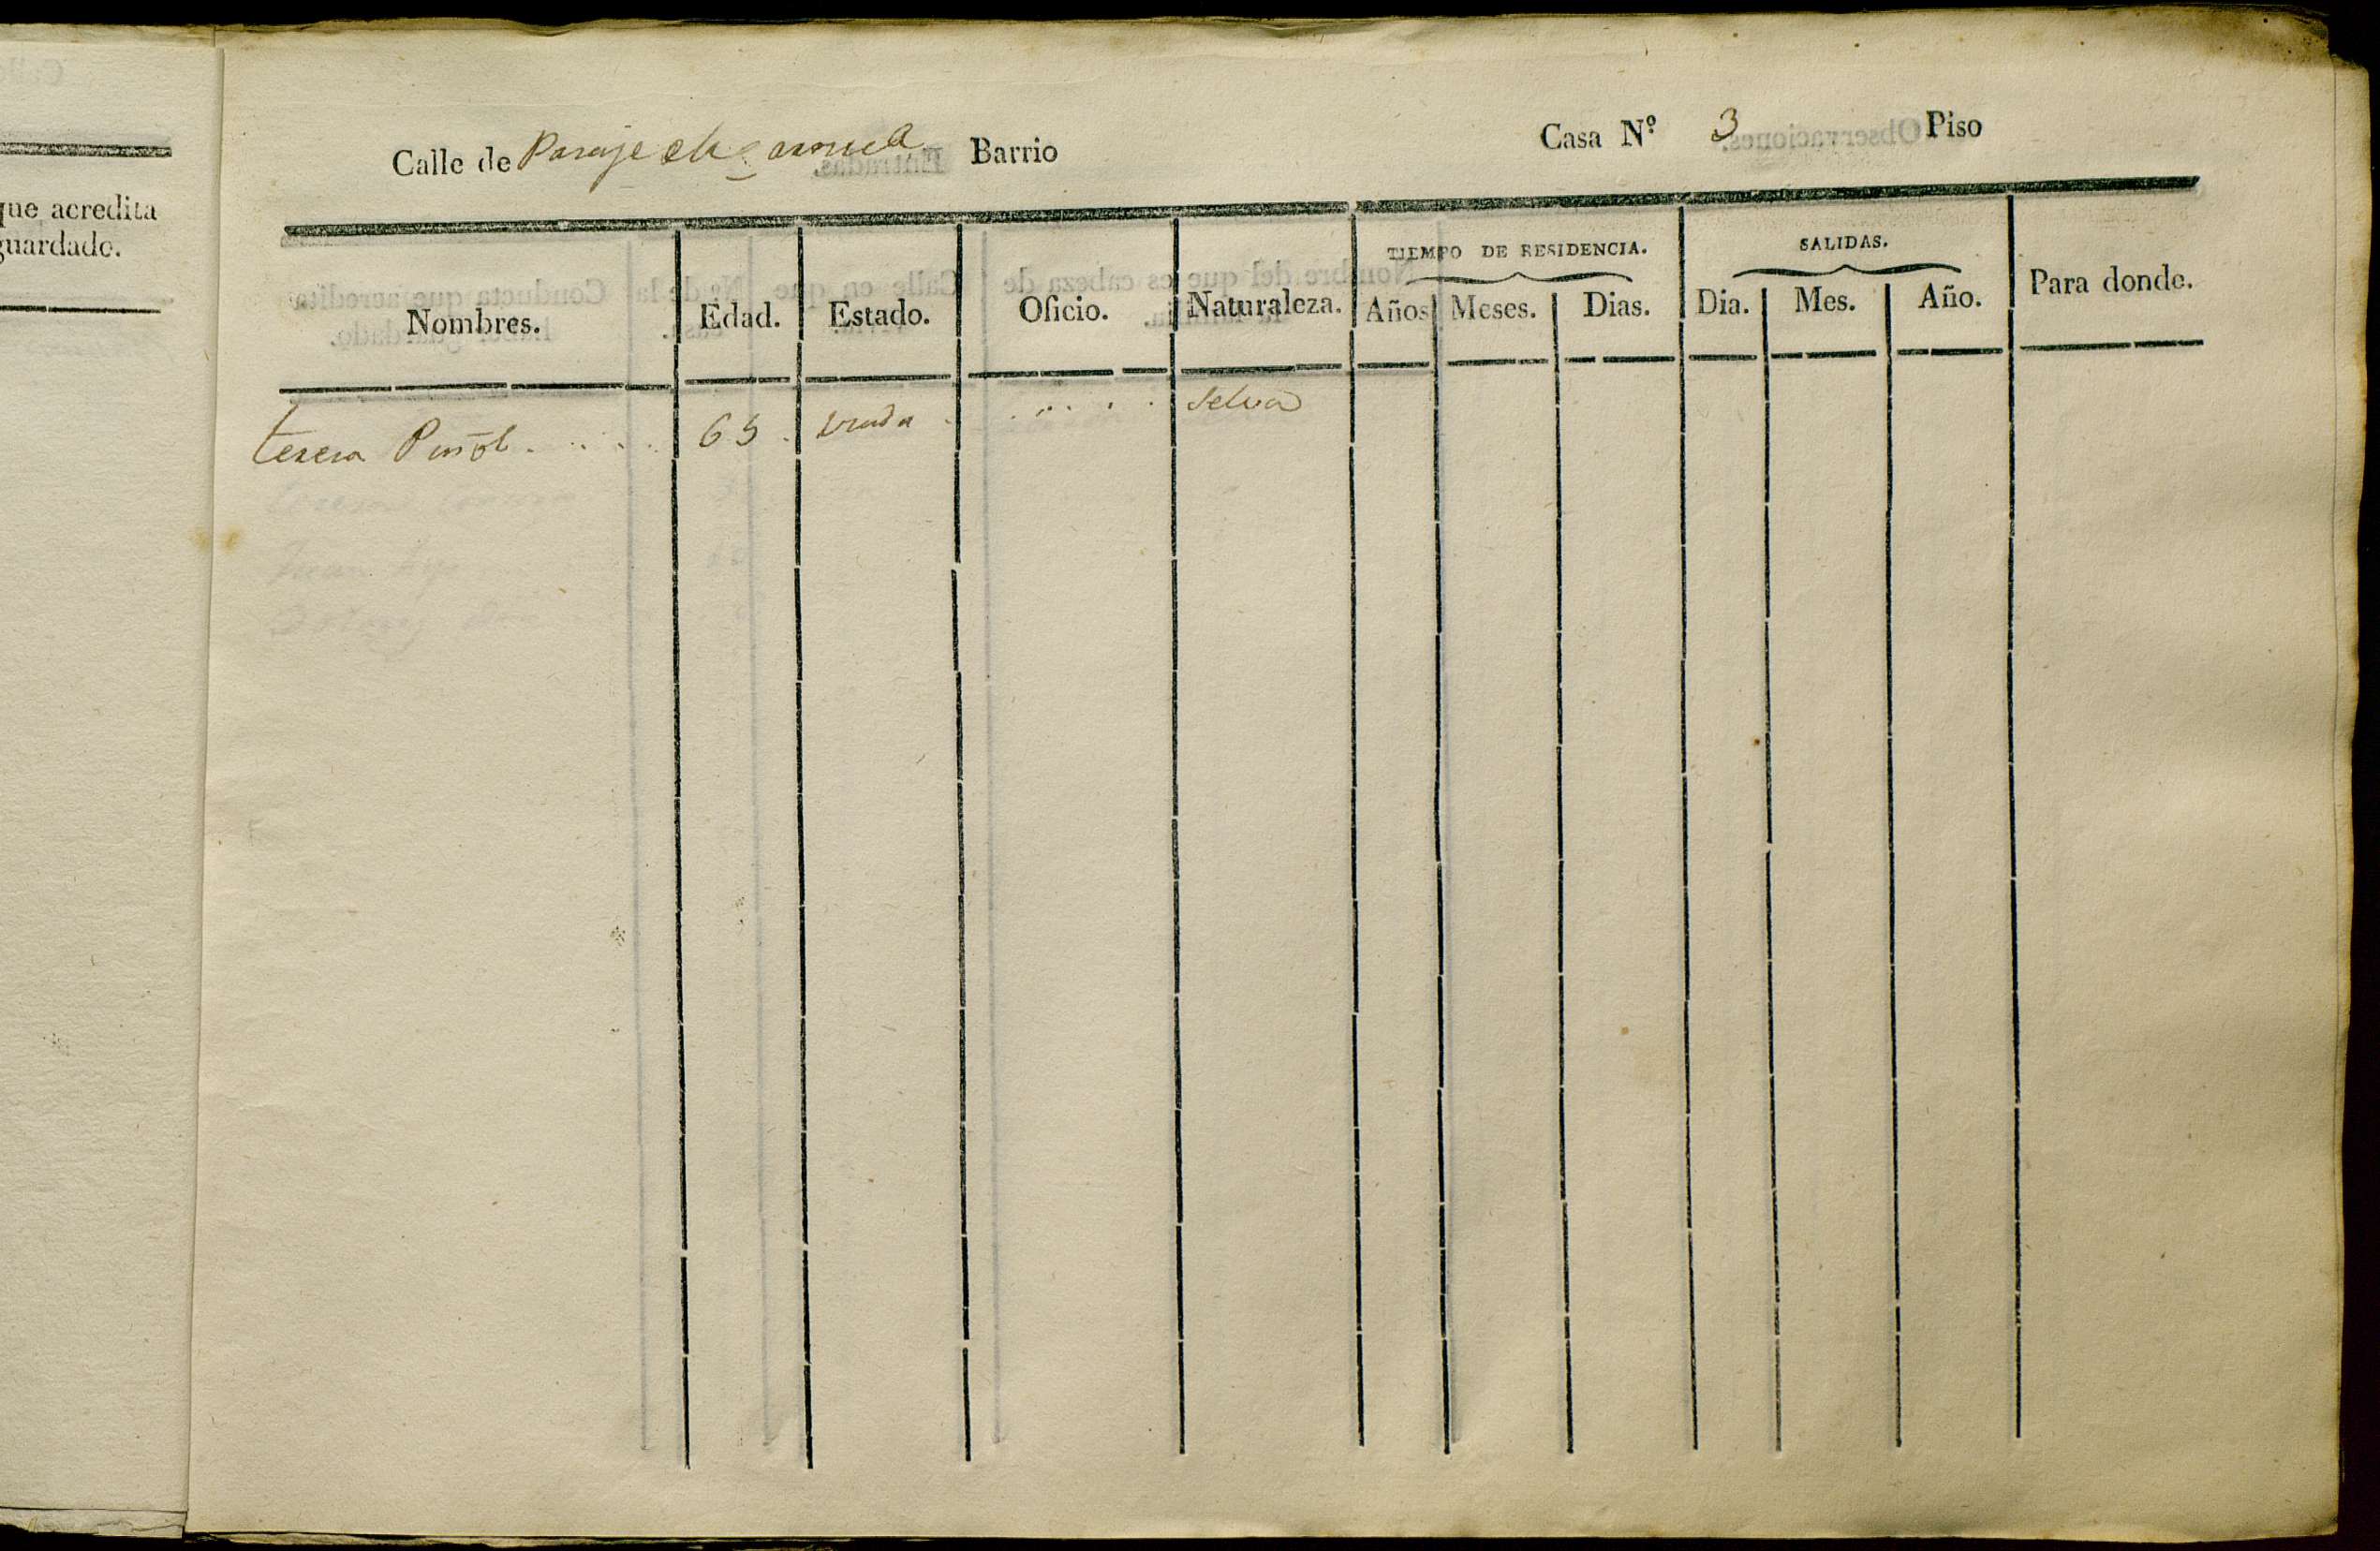 que acredita
guardado.
Calle de Paraje Barrio
Casa Nº 3 Piso
Nombres. Edad. Estado. Oficio. Naturaleza. TIEMPO DE RESIDENCIA. Años Meses. Dias. SALIDAS. Dia. Mes. Año. Para donde.
teresa Piñol 65 viuda Selva